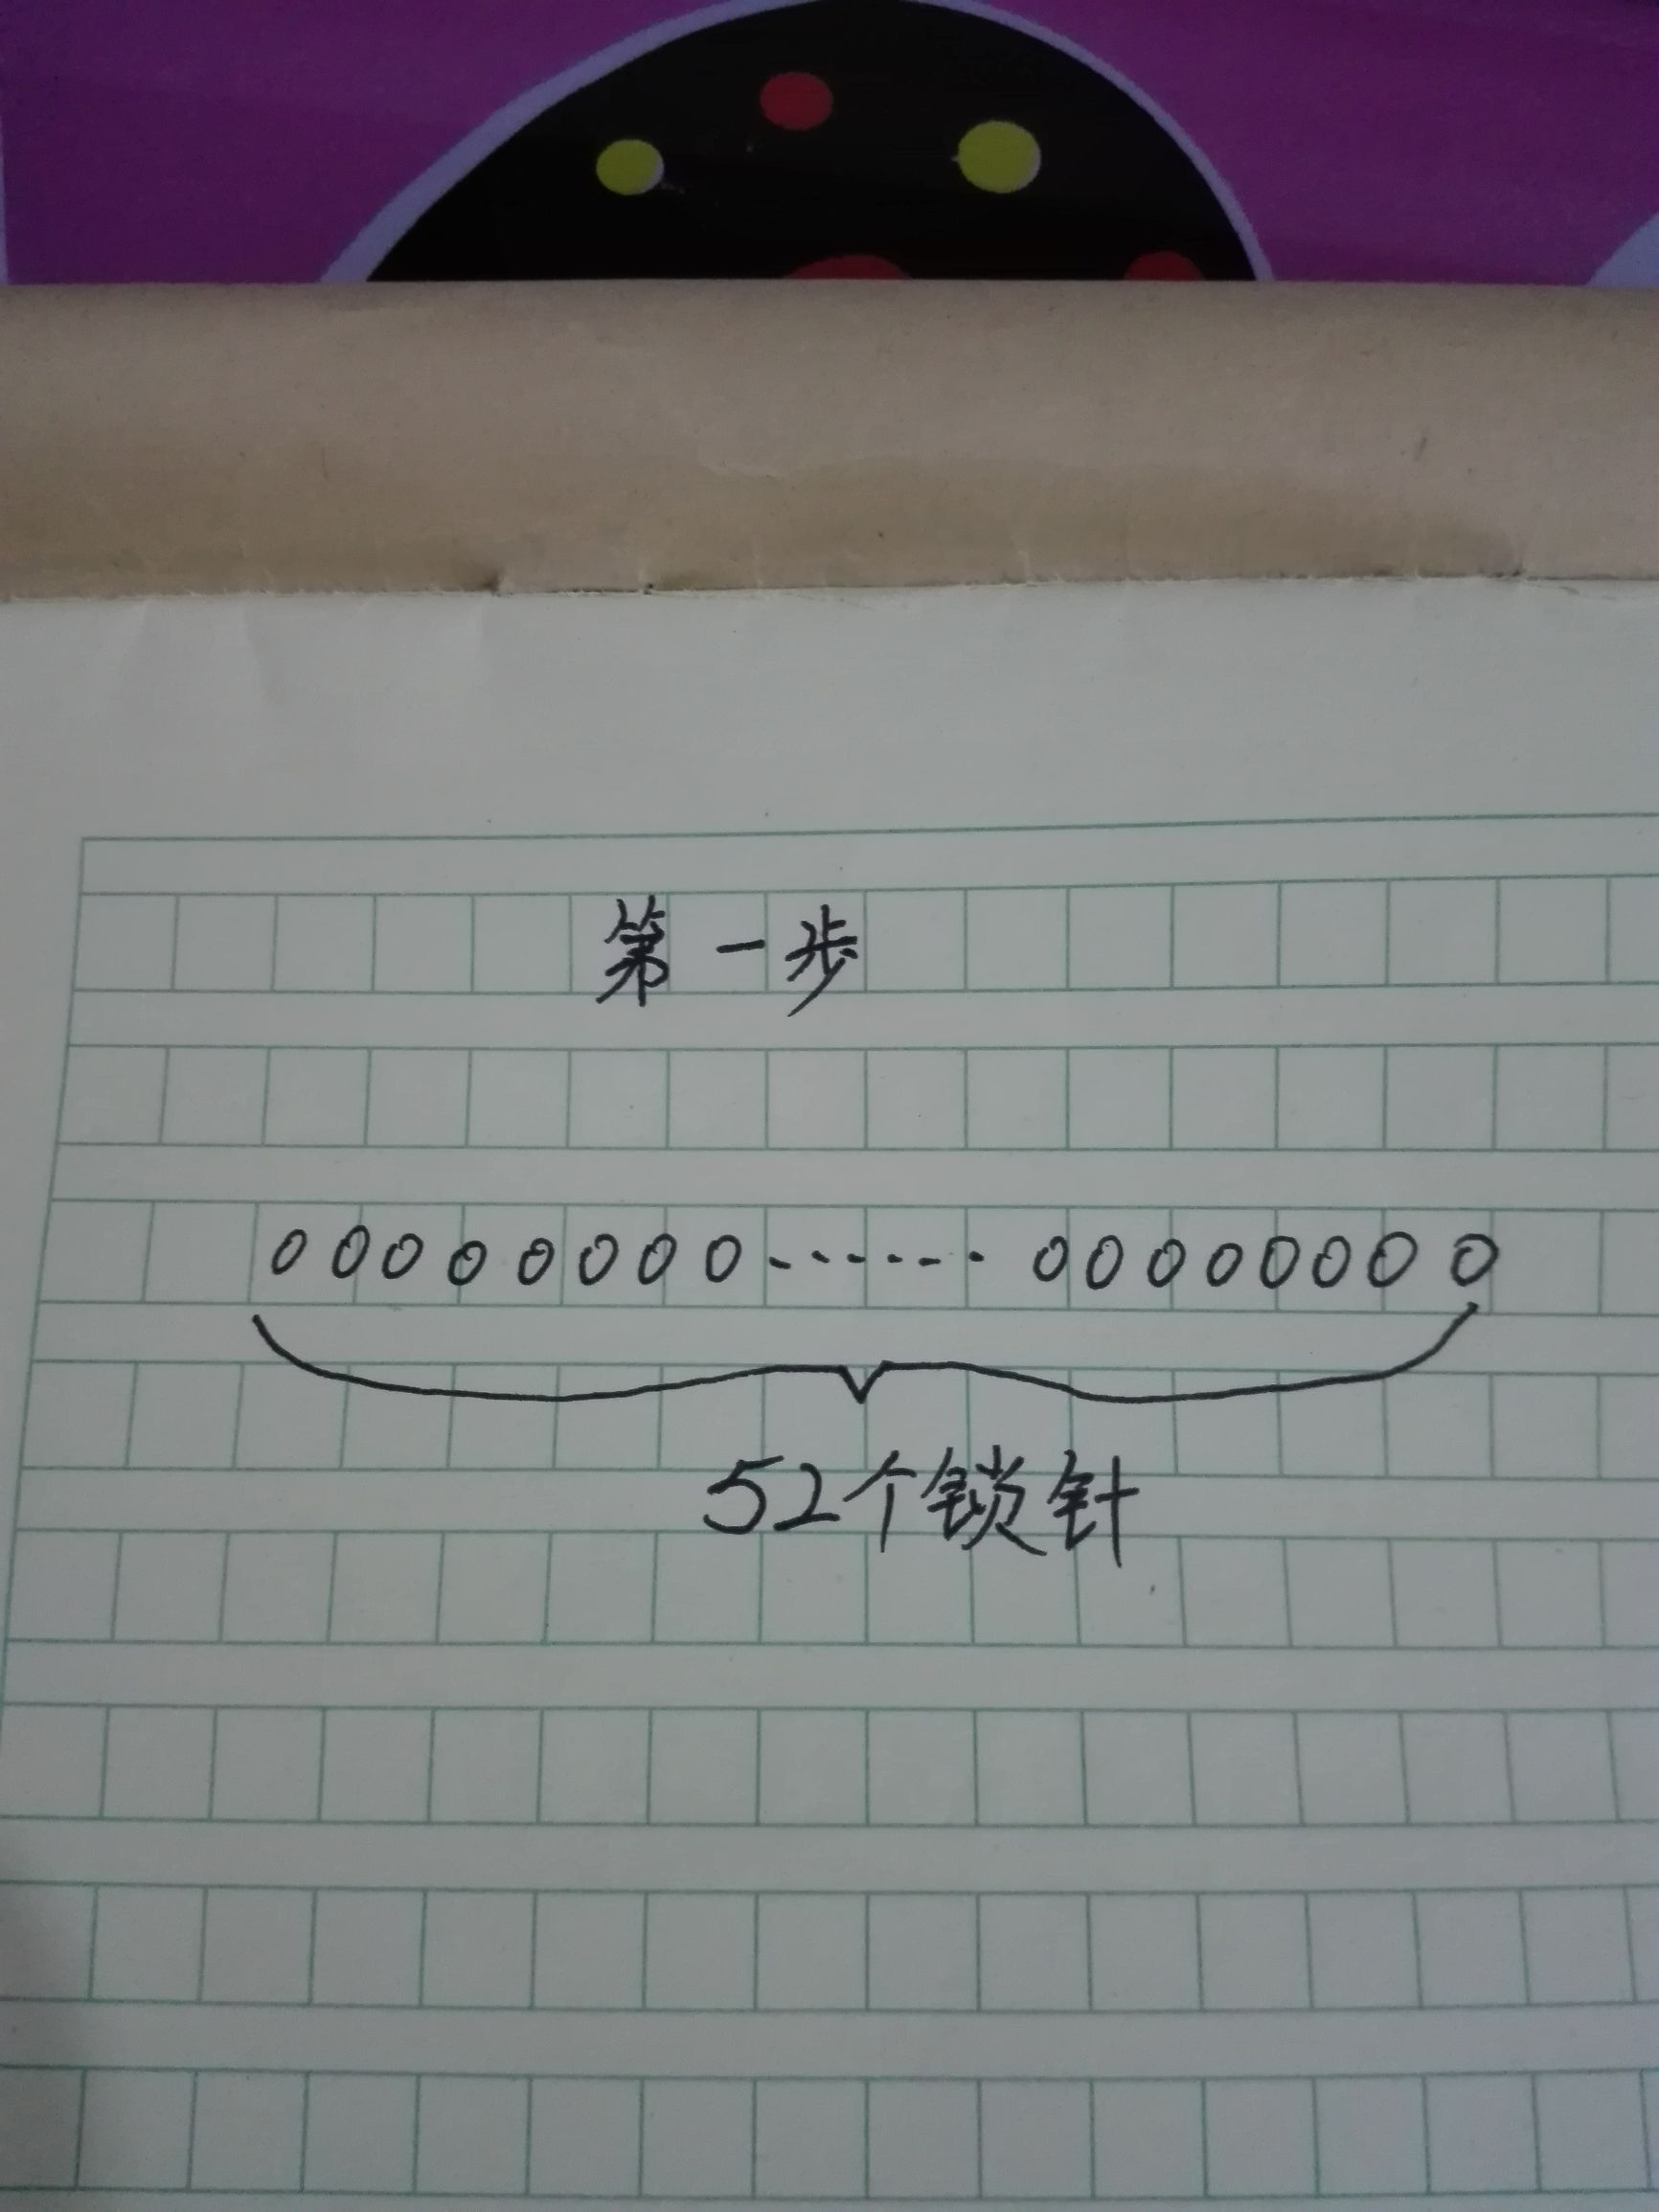 第一步
00000000······00000000
52个锁针